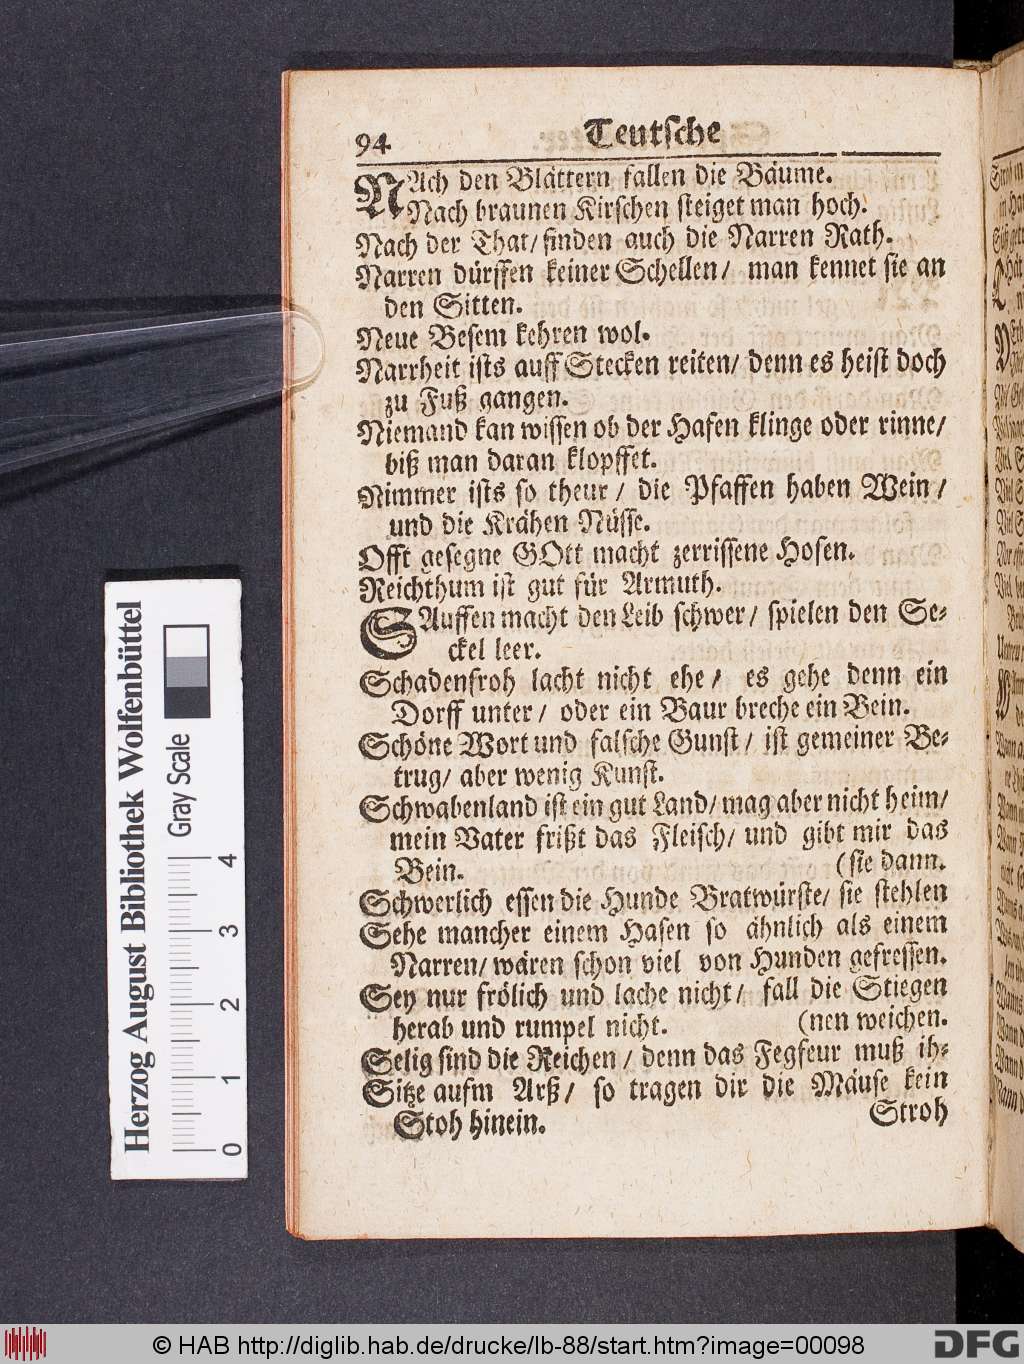 94 Teutsche
NAch den Blättern fallen die Bäume.
Nach braunen Kirschen steiget man hoch.
Nach der That/ finden auch die Narren Rath.
Narren dürffen keiner Schellen/ man kennet sie an
den Sitten.
Neue Besem kehren wol.
Narrheit ists auff Stecken reiten/ denn es heist doch
zu Fuß gangen.
Niemand kan wissen ob der Hafen klinge oder rinne/
biß man daran klopffet.
Nimmer ists so theur/ die Pfaffen haben Wein/
und die Krähen Nüsse.
Offt gesegne GOtt macht zerrissene Hosen.
Reichthum ist gut für Armuth.
SAuffen macht den Leib schwer/ spielen den Se-
ckel leer.
Schadenfroh lacht nicht ehe/ es gehe denn ein
Dorff unter/ oder ein Baur breche ein Bein.
Schöne Wort und falsche Gunst/ ist gemeiner Be-
trug/ aber wenig Kunst.
Schwabenland ist ein gut Land/ mag aber nicht heim/
mein Vater frißt das Fleisch/ und gibt mir das
Bein. (sie dann.
Schwerlich essen die Hunde Bratwürste/ sie stehlen
Sehe mancher einem Hasen so ähnlich als einem
Narren/ wären schon viel von Hunden gefressen.
Sey nur frölich und lache nicht/ fall die Stiegen
herab und rumpel nicht. (nen weichen.
Selig sind die Reichen/ denn das Fegfeur muß ih-
Sitze aufm Arß/ so tragen dir die Mäuse kein
Stoh hinein. Stroh
Herzog August Bibliothek Wolfenbüttel
Gray Scale
0 1 2 3 4
© HAB http://diglib.hab.de/drucke/lb-88/start.htm?image=00098
DFG